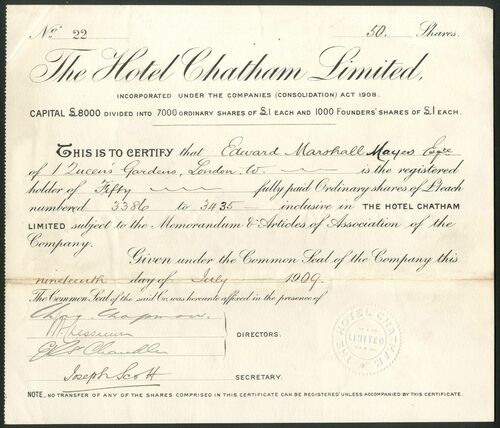 No 22 50. Shares.
The Hotel Chatham Limited,
INCORPORATED UNDER THE COMPANIES (CONSOLIDATION) ACT 1908.
CAPITAL £8000 DIVIDED INTO 7000 ORDINARY SHARES OF £1 EACH AND 1000 FOUNDERS' SHARES OF £1 EACH.
THIS IS TO CERTIFY that Edward Marshall Mayes Esqre
of 1 Queen's Gardens, London. W. is the registered
holder of Fifty fully paid Ordinary shares of £1 each
numbered 3386 to 3435 inclusive in THE HOTEL CHATHAM
LIMITED subject to the Memorandum & Articles of Association of the
Company.
Given under the Common Seal of the Company this
nineteenth day of July 1909.
The Common Seal of the said Co. was hereunto affixed in the presence of
Chapman
DIRECTORS.
Chandler
THE HOTEL CHATHAM
LIMITED
Joseph Scott SECRETARY.
NOTE, NO TRANSFER OF ANY OF THE SHARES COMPRISED IN THIS CERTIFICATE CAN BE REGISTERED UNLESS ACCOMPANIED BY THIS CERTIFICATE.